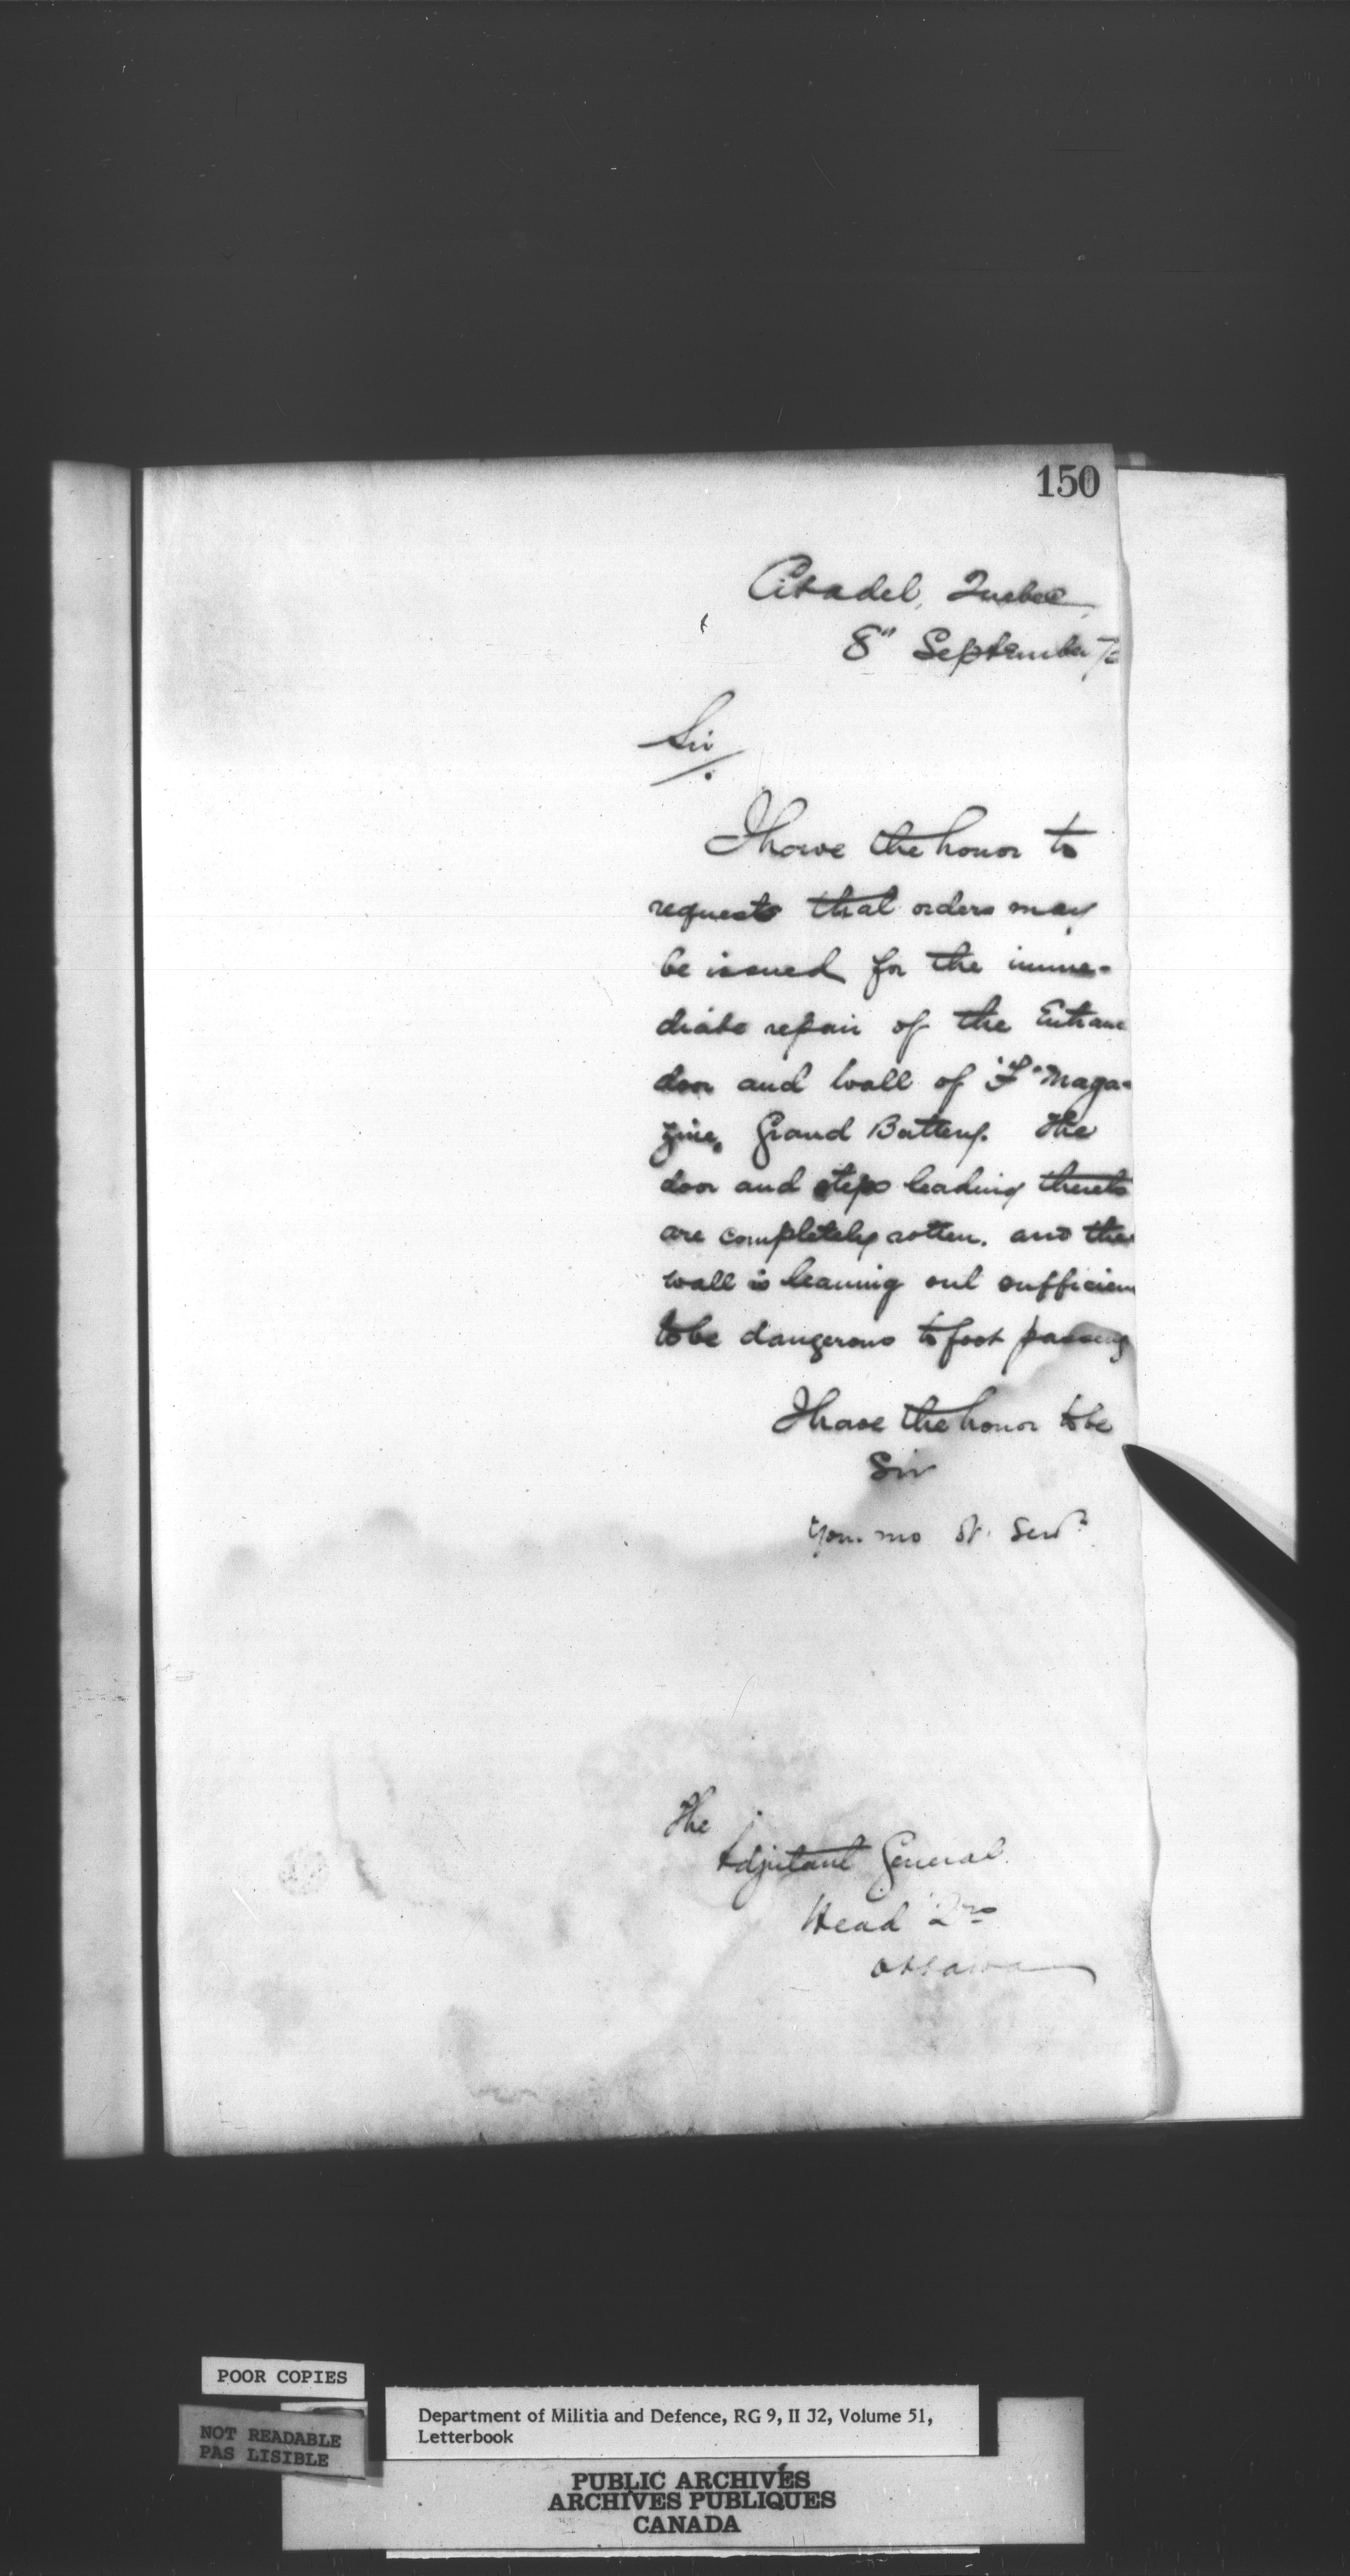 150
Citadel, Quebec
8" September 7
Sir
I have the honor to
request that orders may
be issued for the imme-
diate repair of the Entranc
door and wall of "F" Maga-
zine, Grand Battery. The
door and steps leading thereto
are completely rotten. and the
wall is leaning out sufficien
to be dangerous to foot passeng
I have the honor to be
Sir
Your mo St. Servt.
The
Adjutant General
Head Qrs
Ottawa
POOR COPIES
NOT READABLE
PAS LISIBLE
Department of Militia and Defence, RG 9, II J2, Volume 51,
Letterbook
PUBLIC ARCHIVES
ARCHIVES PUBLIQUES
CANADA